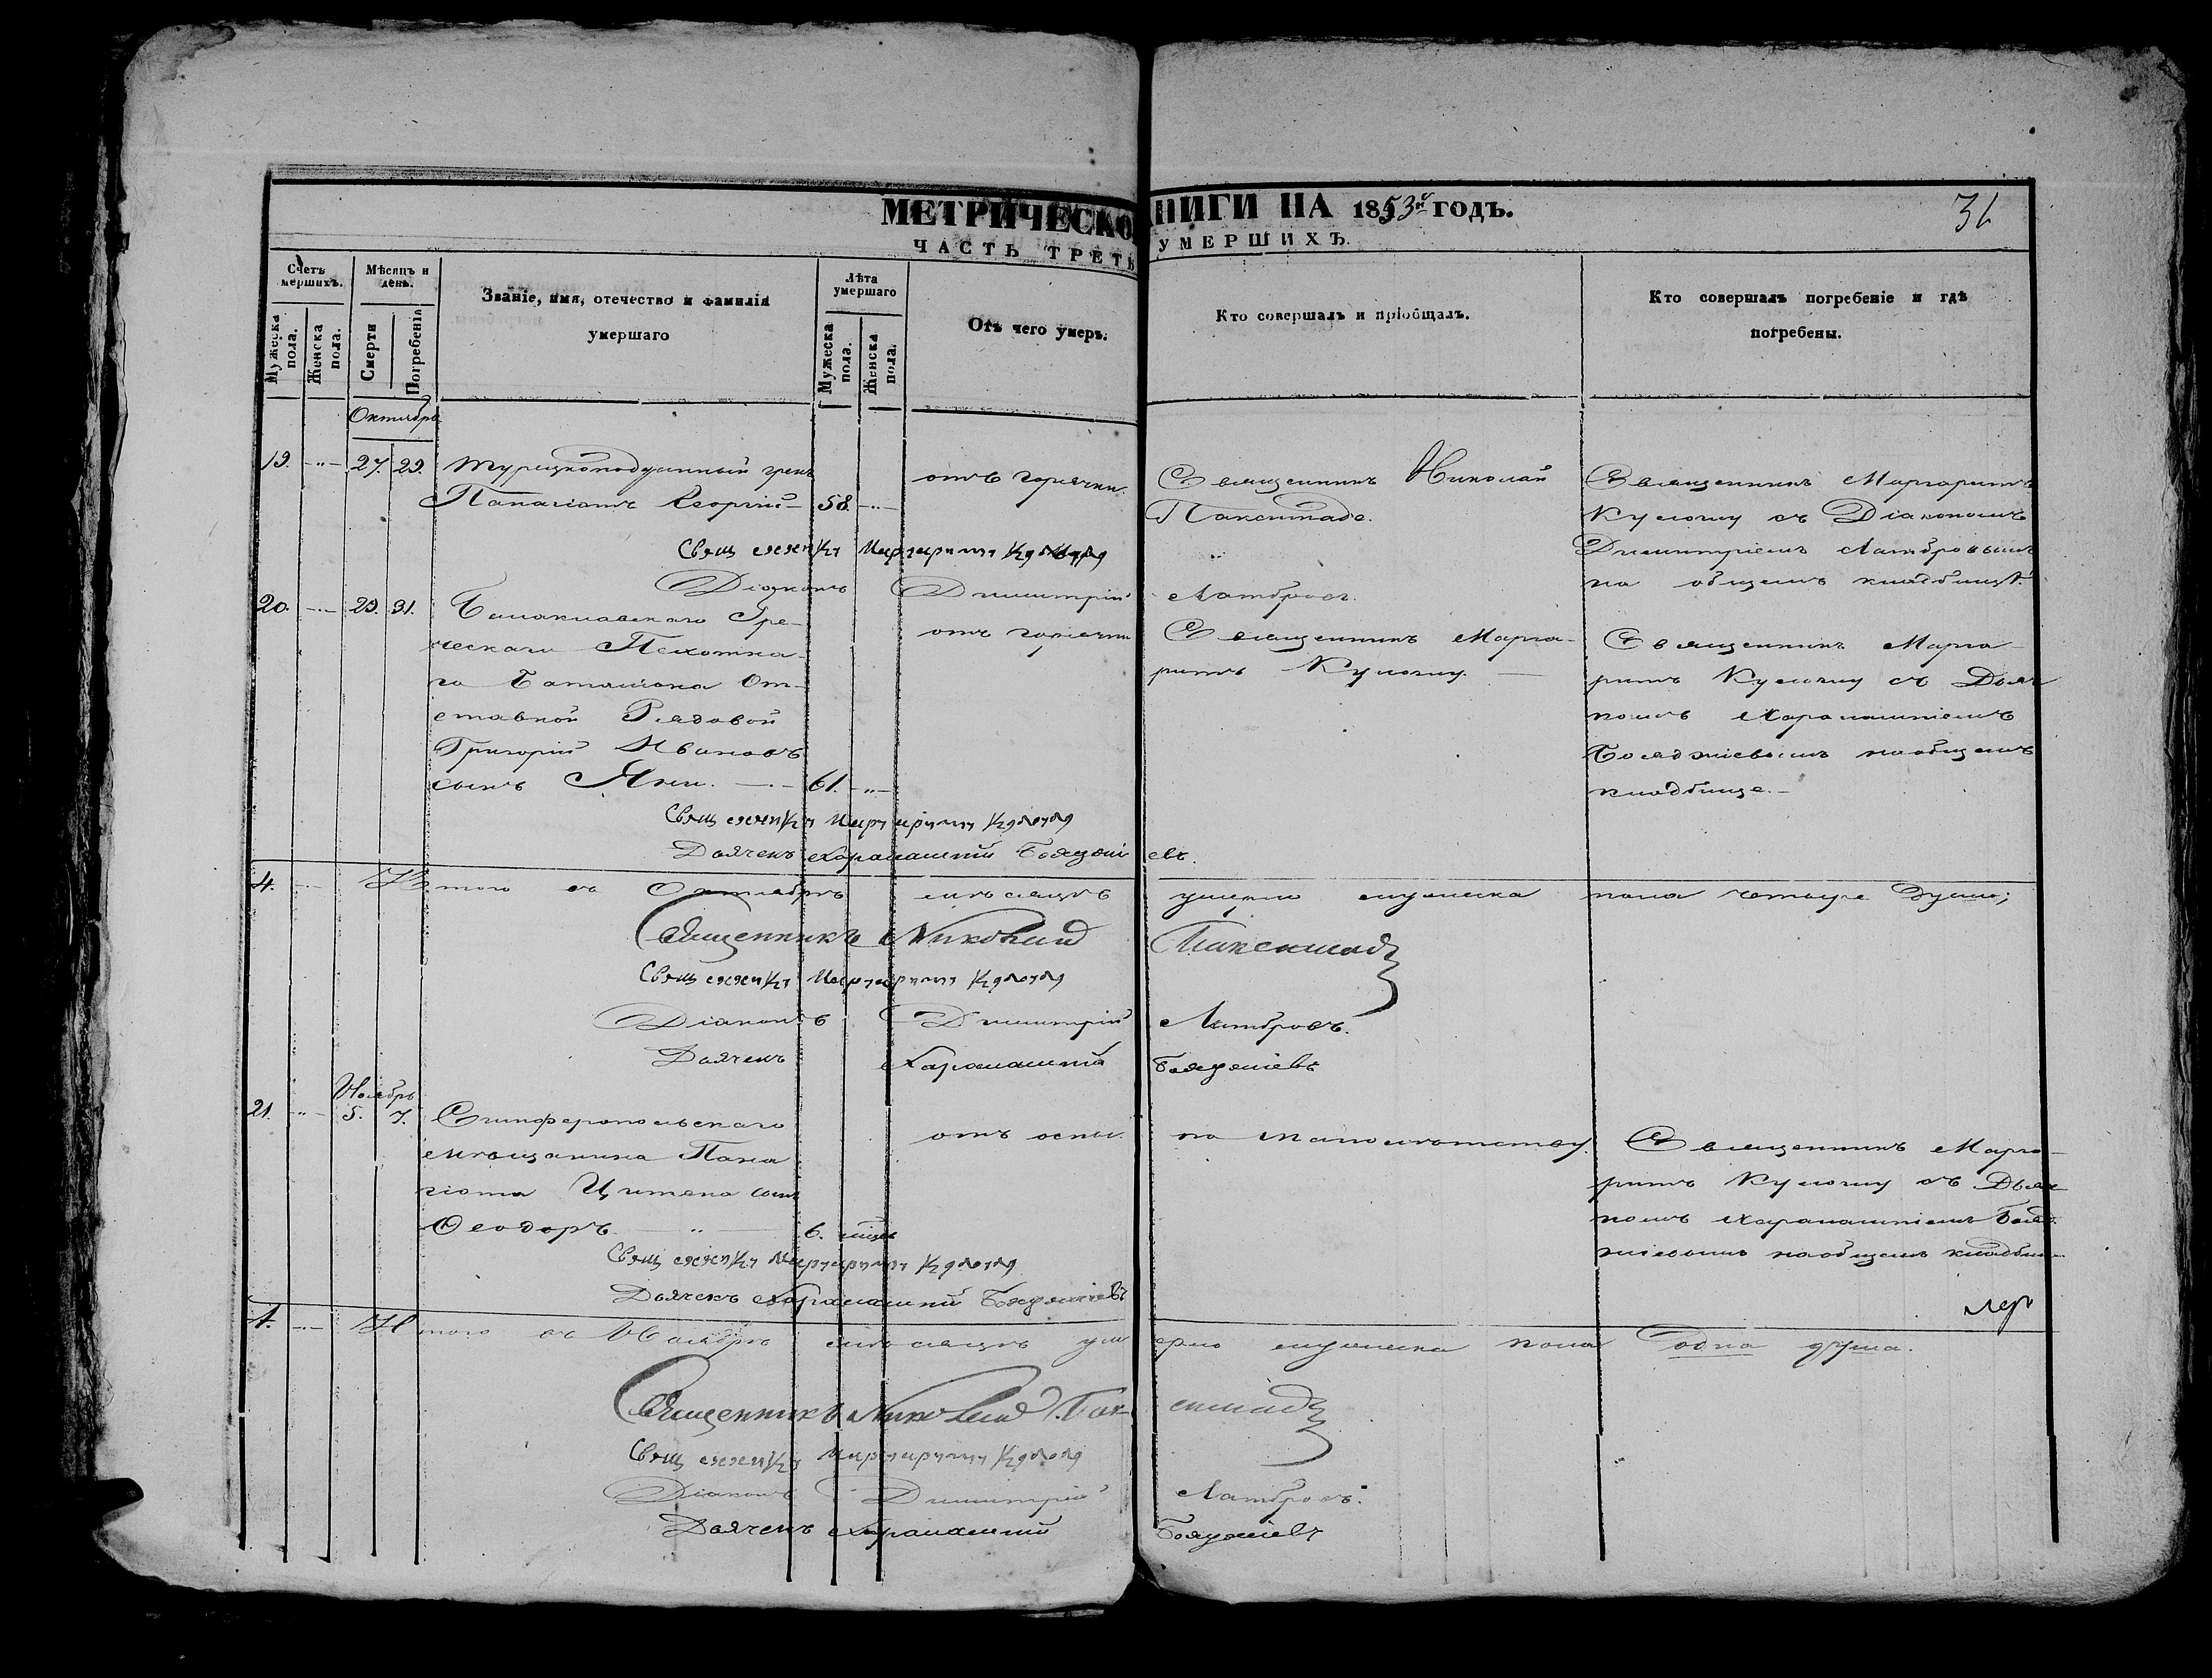 МЕТРИЧЕСКО НИГИ НА 1853й ГОДЪ.
31
ЧАСТЬ ТРЕТЬ УМЕРШИХЪ.
Счетъ мершихъ.
Мужеска пола.
Женска пола.
Мѣсяцъ и день.
Смерти
Погребенія
Званіе, имя, отечество и фамилія
умершаго
Лѣта умершаго
Мужеска пола.
Женска пола.
Отъ чего умеръ.
Кто совершалъ и пріобщалъ.
Кто совершалъ погребеніе и гдѣ
погребены.
Октябрь
19. 27. 29. Турецкоподданный грекъ
Панагіотъ Георгій 58.
отъ горячки.
Священникъ Николай
Священникъ Маргаритъ
съ Діакономъ
Димитріемъ Ламбровымъ
на общемъ кладбищѣ.
Священникъ Маргаритъ
Діаконъ Димитрій Ламбровъ.
20. 29. 31. Балаклавскаго Гре-
ческаго Пехотна-
го Баталіона От-
ставной Рядовой
Григорій Ивановъ
сынъ Яни. 61.
отъ горячки
Священникъ Марга-
ритъ
Священникъ Марга-
ритъ съ Дьяч
комъ Харалампіемъ
Бояджіевымъ на общемъ
кладбище.
Священникъ Маргаритъ
Дьячекъ Харалампій Бояджіевъ.
4. Итого въ Октябрѣ мѣсяцѣ умерло мужеска пола четыре души;
Священникъ Николай
Священникъ Маргаритъ
Діаконъ Димитрій Ламбровъ.
Дьячекъ Харалампій Бояджіевъ
Ноябрь
21. 5. 7. Симферопольскаго
мѣщанина Пана
гіота сынъ
Ѳеодоръ 6. мѣсц
отъ оспы.
по малолѣтству.
Священникъ Марга-
ритъ съ Дьяч
комъ Харалампіемъ Бояд-
жіевымъ на общемъ кладби-
Священникъ Маргаритъ
Дьячекъ Харалампій Бояджіевъ
1. Итого въ Ноябрѣ мѣсяцѣ умерло мужеска пола одна душа.
Священникъ Николай
Священникъ Маргаритъ
Діаконъ Димитрій Ламбровъ.
Дьячекъ Харалампій Бояджіевъ